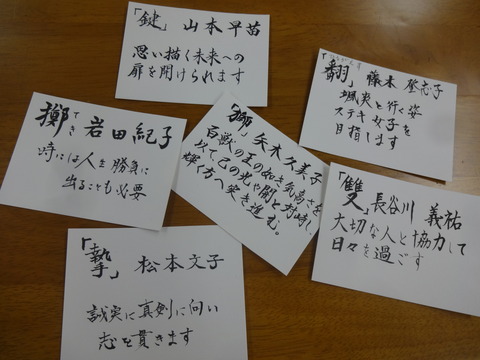 「鍵」 山本早苗
思い描く未来への
扉を開けられます
「翻」 藤本 登志子
颯爽と行く姿
ステキ女子を
目指します
擲 岩田紀子
てき
時には人生勝負に
出ることも必要
「獅」 矢木久美子
百獣の王の如き気高さを
以て己の光や闇と対峙し
輝く方へ突き進む。
「雙」 長谷川 義祐
大切な人と協力して
日々を過ごす
「摯」 松本文子
誠実に真剣に向い
志を貫きます